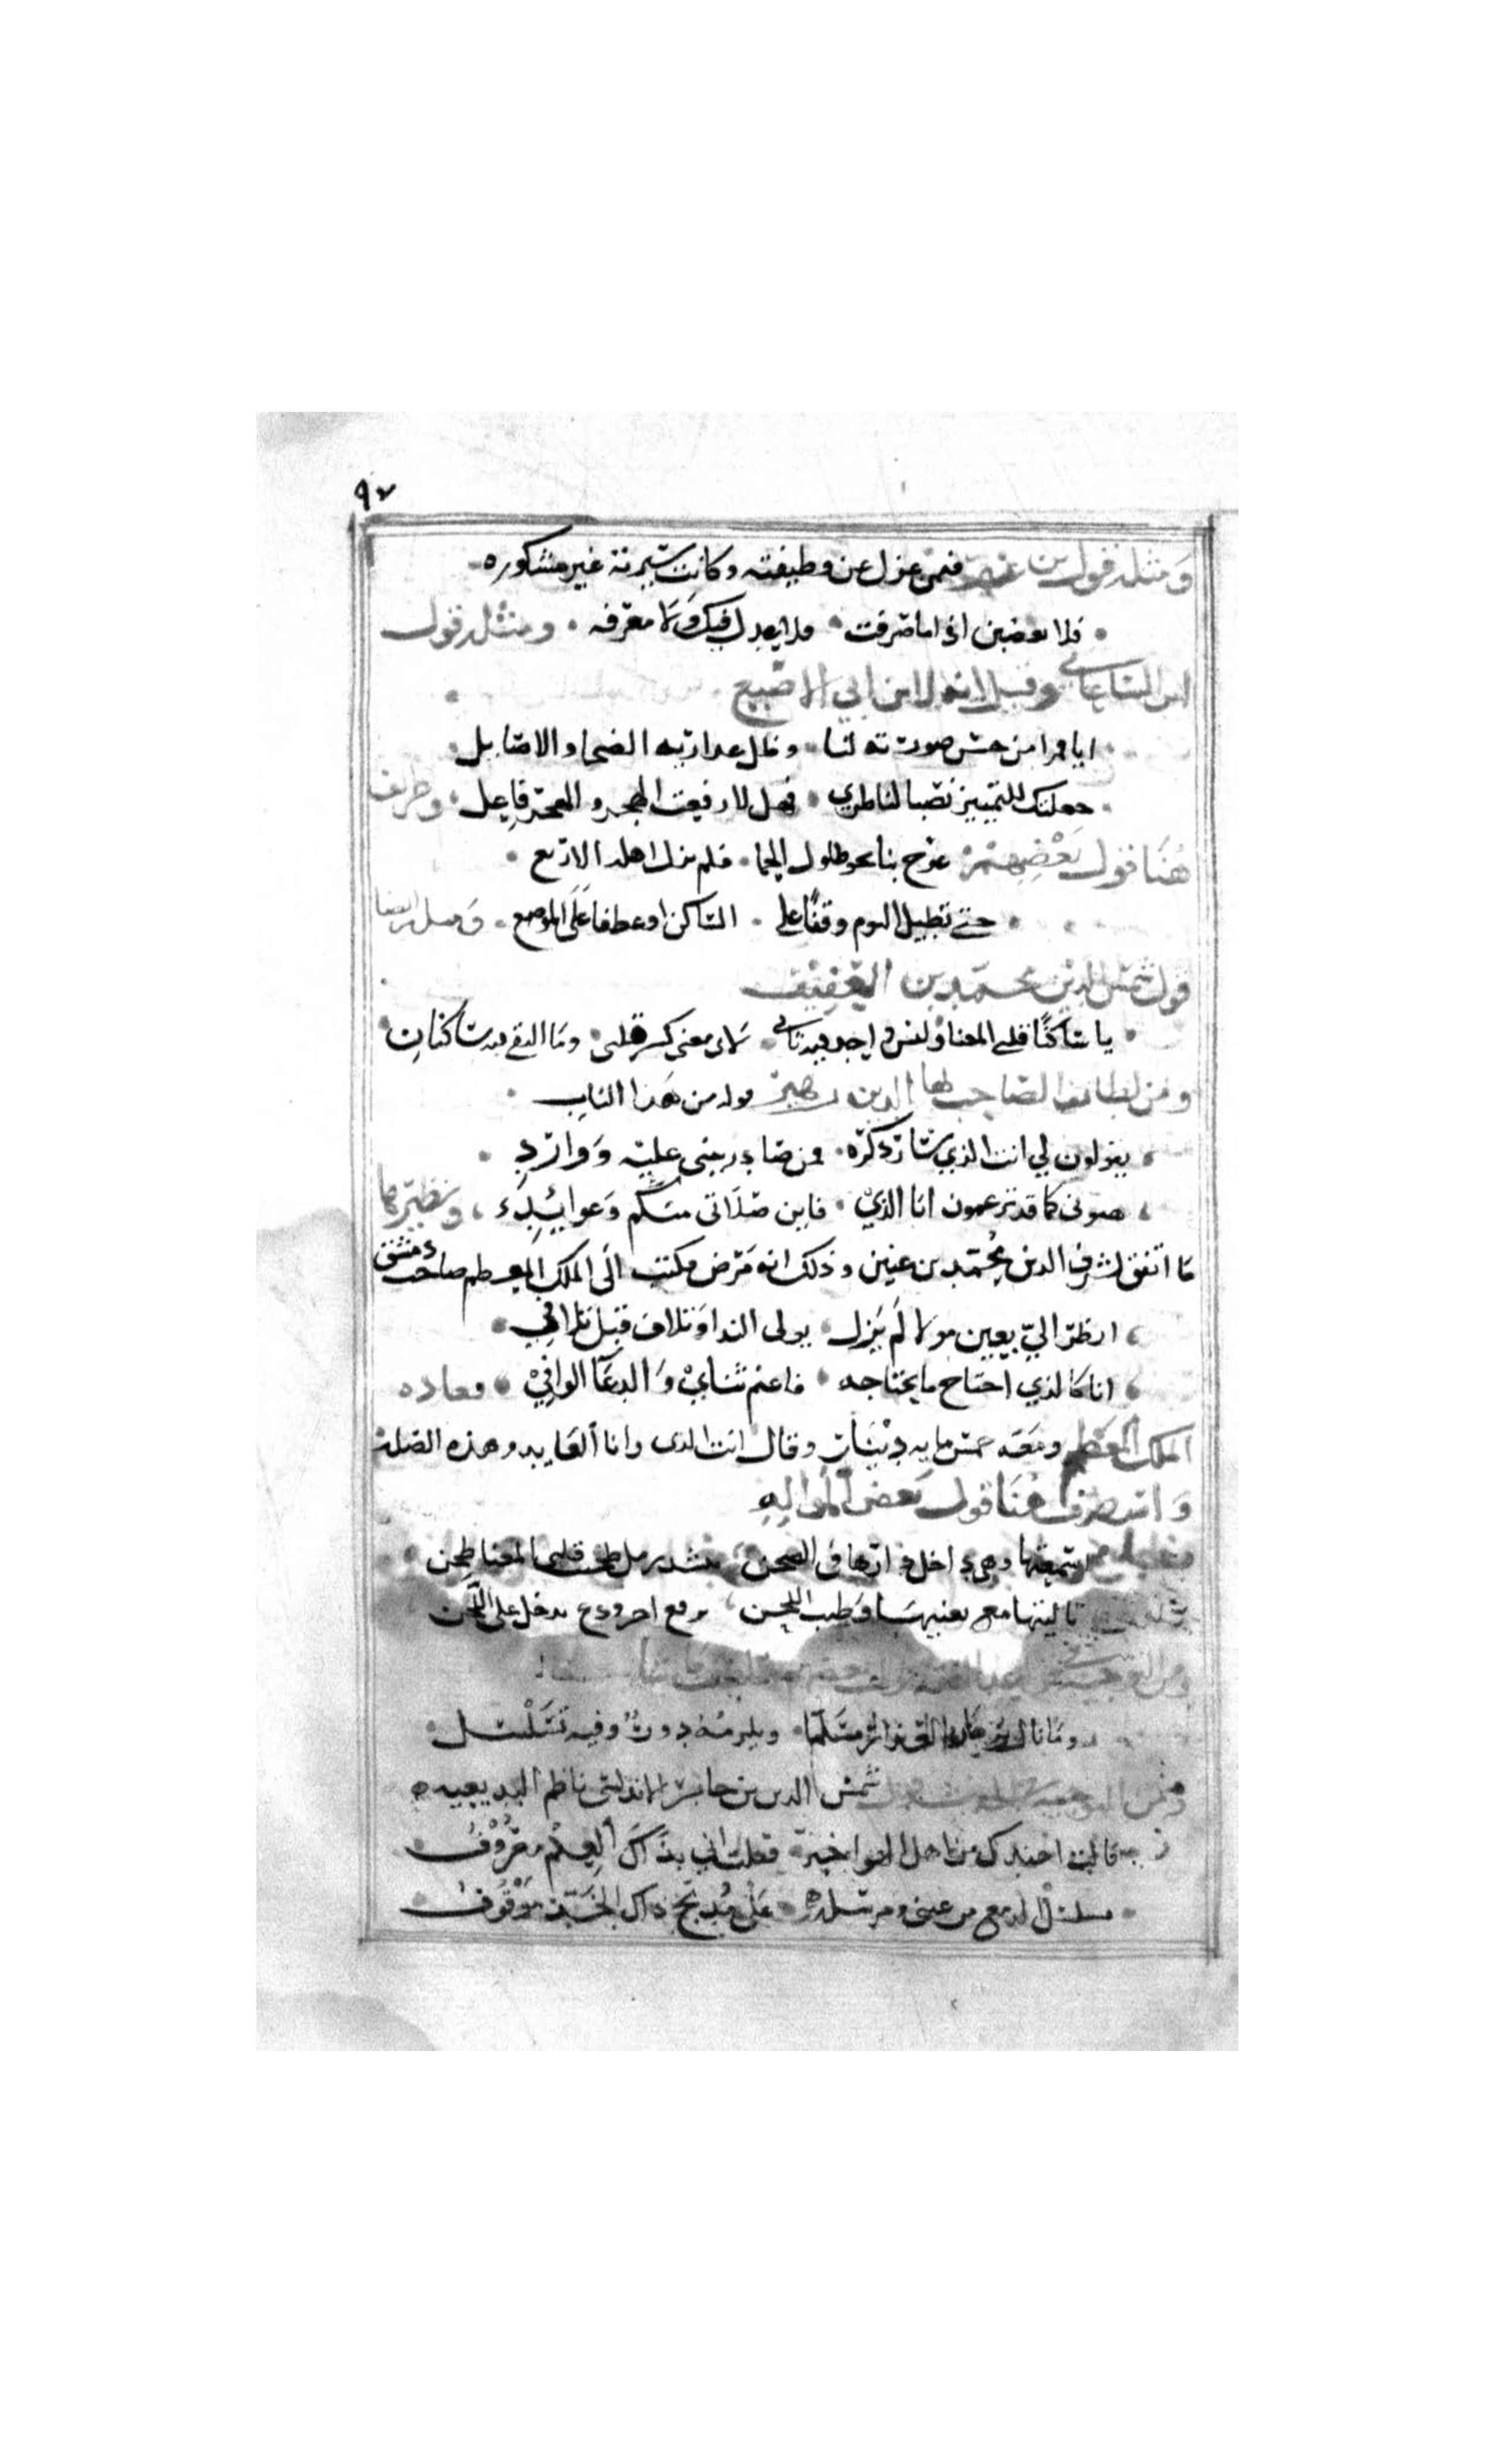 ٩٧
ومثله قول بن فمن عزل عن وظيفته وكانت سيرته غير مشكوره
فلا تغضبن اذا ما صرفت فلا يعدل فيك ولا معرفه ومثله قول
ابن الساعاتي وقيل انه لابن ابي الاصبع
ايا قمرا من حسن صورته لنا وظل عداريه الضحا والاصايل
جعلتك للتمييز نصبا لناظري فهل لا رفعت الهجر والهجر فاعل وظريف
هنا قول بعضهم عرج بنا نحو طلول الحما فلم نزل اهله الاربع
حتى نطيل اليوم وقفا على الساكن او عطفا على الموضع ومثله ايضا
قول شمس الدين محمد بن العفيف
يا ساكنا قلبي المعنا وليس فيه ثاني لاي معنى كسر قلبي وما التقى فيه ساكنان
ومن لطائف الصاحب بها الدين زهير قوله من هذا الباب
يقولون لي انت الذي سار ذكره فمن صادر يثني عليه ووارد
هبوني كما قد تزعمون انا الذي فاين صلاتي منكم وعوايدي ونظيرها
ما اتفق لشرف الدين محمد بن عنين وذلك انه مرض فكتب الى الملك المعظم صاحب دمشق
انظر الي بعين مولا لم يزل يولى الندا وتلاف قبل تلافي
انا كالذي احتاج ما يحتاجه فاغنم ثناي والدعا الوافي فعاده
الملك المعظم ومعه خمس مايه دينار وقال انت الذي وانا العايد وهذه الصلة
هنا قول بعض المواليه
سمعتها وهي داخل دارها في الصحن تنشد طحنت قلبي المعنا طحن
ناليتها مع وطيب اللحن ترفع اجر ودع تدخل على اللحن
وفيه تسلسل
شمس الدين بن جابر الاندلسي ناظم البديعيه
قالت اعندك من اهل الهوا خبر فقلت اني بذاك العلم معروف
مسلسل الدمع من عيني ومرسله على مدبج ذاك الخد موقوف